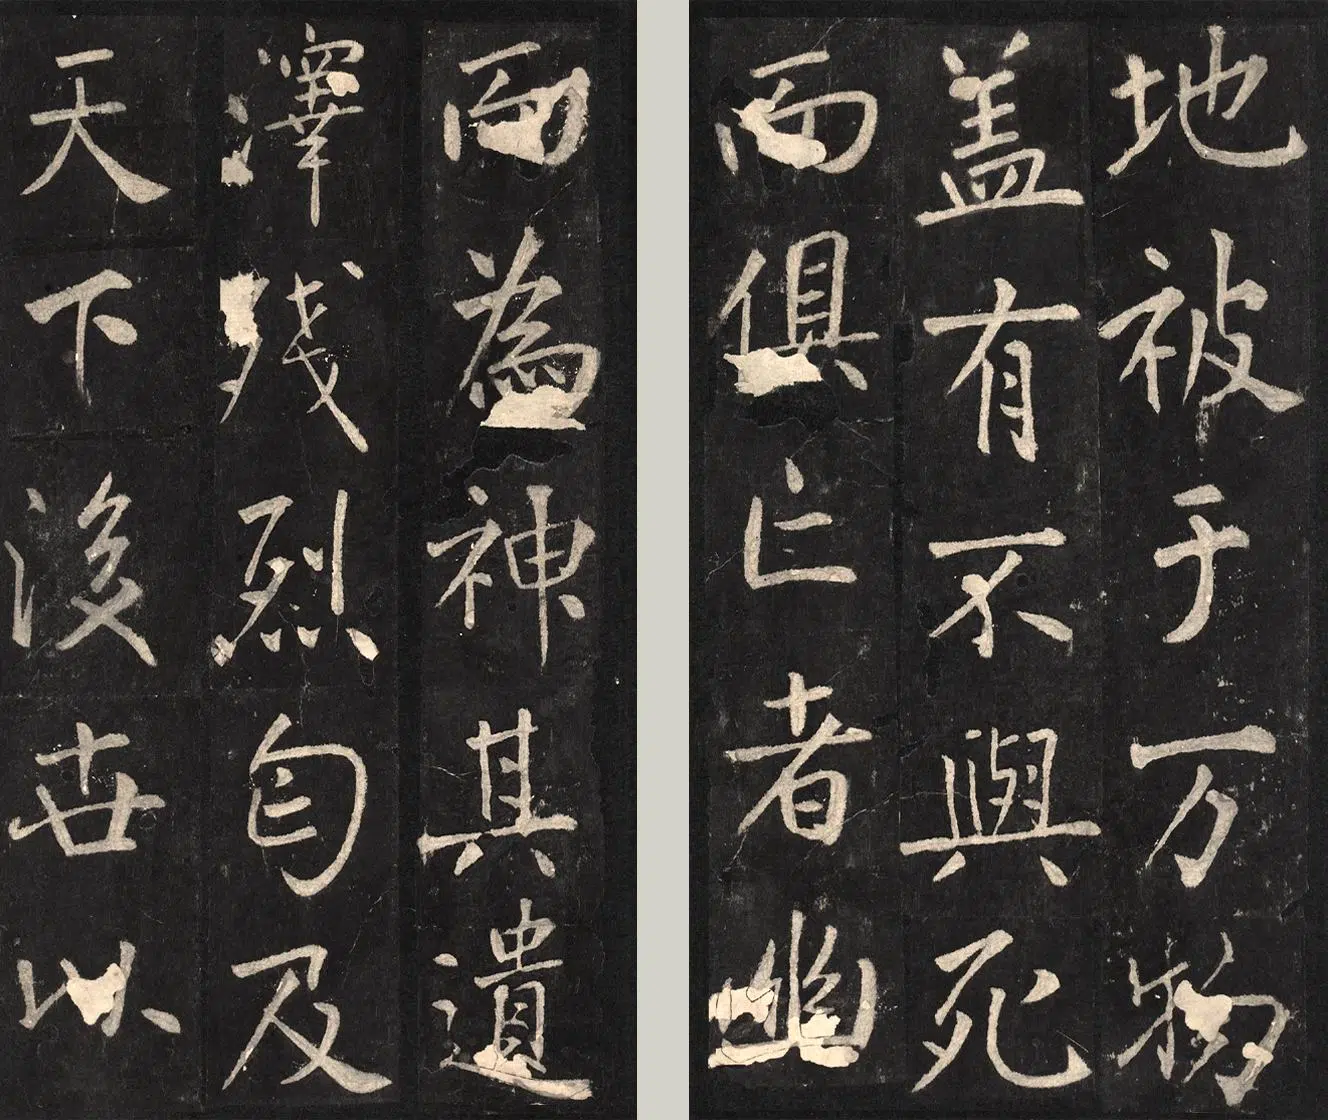 地被于万物
盖有不與死
而俱亡者幽
而為神其遺
澤残烈匄及
天下後世以